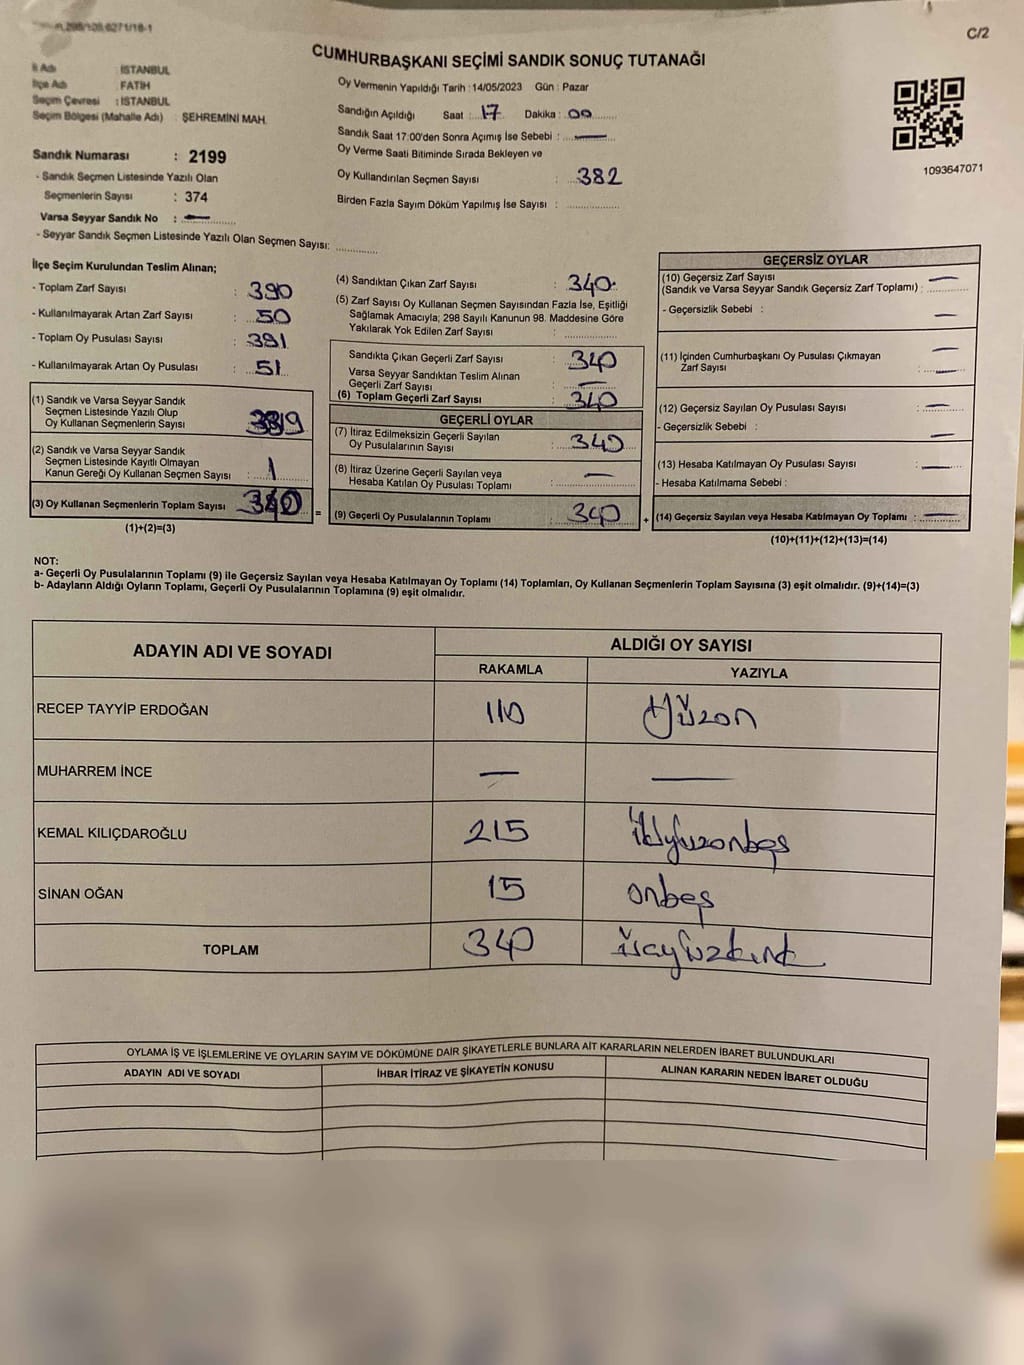 C/2
CUMHURBAŞKANI SEÇİMİ SANDIK SONUÇ TUTANAĞI
İl Adı : İSTANBUL
İlçe Adı : FATİH
Seçim Çevresi : İSTANBUL
Seçim Bölgesi (Mahalle Adı) : ŞEHREMİNİ MAH.
Sandık Numarası : 2199
- Sandık Seçmen Listesinde Yazılı Olan
Seçmenlerin Sayısı : 374
Varsa Seyyar Sandık No : —
- Seyyar Sandık Seçmen Listesinde Yazılı Olan Seçmen Sayısı:
Oy Vermenin Yapıldığı Tarih : 14/05/2023 Gün : Pazar
Sandığın Açıldığı Saat : 17 Dakika : 00
Sandık Saat 17:00'den Sonra Açımış İse Sebebi : —
Oy Verme Saati Bitiminde Sırada Bekleyen ve
Oy Kullandırılan Seçmen Sayısı : 382
Birden Fazla Sayım Döküm Yapılmış İse Sayısı :
1093647071
İlçe Seçim Kurulundan Teslim Alınan;
- Toplam Zarf Sayısı : 390
- Kullanılmayarak Artan Zarf Sayısı : 50
- Toplam Oy Pusulası Sayısı : 391
- Kullanılmayarak Artan Oy Pusulası : 51
(1) Sandık ve Varsa Seyyar Sandık
Seçmen Listesinde Yazılı Olup
Oy Kullanan Seçmenlerin Sayısı
(2) Sandık ve Varsa Seyyar Sandık
Seçmen Listesinde Kayıtlı Olmayan
Kanun Gereği Oy Kullanan Seçmen Sayısı : 1
(3) Oy Kullanan Seçmenlerin Toplam Sayısı 340
(1)+(2)=(3)
=
(4) Sandıktan Çıkan Zarf Sayısı : 340
(5) Zarf Sayısı Oy Kullanan Seçmen Sayısından Fazla İse, Eşitliği
Sağlamak Amacıyla; 298 Sayılı Kanunun 98. Maddesine Göre
Yakılarak Yok Edilen Zarf Sayısı :
Sandıkta Çıkan Geçerli Zarf Sayısı : 340
Varsa Seyyar Sandıktan Teslim Alınan
Geçerli Zarf Sayısı : —
(6) Toplam Geçerli Zarf Sayısı : 340
GEÇERLİ OYLAR
(7) İtiraz Edilmeksizin Geçerli Sayılan
Oy Pusulalarının Sayısı : 340
(8) İtiraz Üzerine Geçerli Sayılan veya
Hesaba Katılan Oy Pusulası Toplamı : —
(9) Geçerli Oy Pusulalarının Toplamı : 340
+
GEÇERSİZ OYLAR
(10) Geçersiz Zarf Sayısı —
(Sandık ve Varsa Seyyar Sandık Geçersiz Zarf Toplamı) :
- Geçersizlik Sebebi : —
(11) İçinden Cumhurbaşkanı Oy Pusulası Çıkmayan —
Zarf Sayısı : —
(12) Geçersiz Sayılan Oy Pusulası Sayısı : —
- Geçersizlik Sebebi : —
(13) Hesaba Katılmayan Oy Pusulası Sayısı : —
- Hesaba Katılmama Sebebi :
(14) Geçersiz Sayılan veya Hesaba Katılmayan Oy Toplamı : —
(10)+(11)+(12)+(13)=(14)
NOT:
a- Geçerli Oy Pusulalarının Toplamı (9) ile Geçersiz Sayılan veya Hesaba Katılmayan Oy Toplamı (14) Toplamları, Oy Kullanan Seçmenlerin Toplam Sayısına (3) eşit olmalıdır. (9)+(14)=(3)
b- Adayların Aldığı Oyların Toplamı, Geçerli Oy Pusulalarının Toplamına (9) eşit olmalıdır.
ADAYIN ADI VE SOYADI ALDIĞI OY SAYISI
RAKAMLA YAZIYLA
RECEP TAYYİP ERDOĞAN 110 Yüzon
MUHARREM İNCE — —
KEMAL KILIÇDAROĞLU 215 ikiyüzonbeş
SİNAN OĞAN 15 onbeş
TOPLAM 340 üçyüzkırk
OYLAMA İŞ VE İŞLEMLERİNE VE OYLARIN SAYIM VE DÖKÜMÜNE DAİR ŞİKAYETLERLE BUNLARA AİT KARARLARIN NELERDEN İBARET BULUNDUKLARI
ADAYIN ADI VE SOYADI İHBAR İTİRAZ VE ŞİKAYETİN KONUSU ALINAN KARARIN NEDEN İBARET OLDUĞU